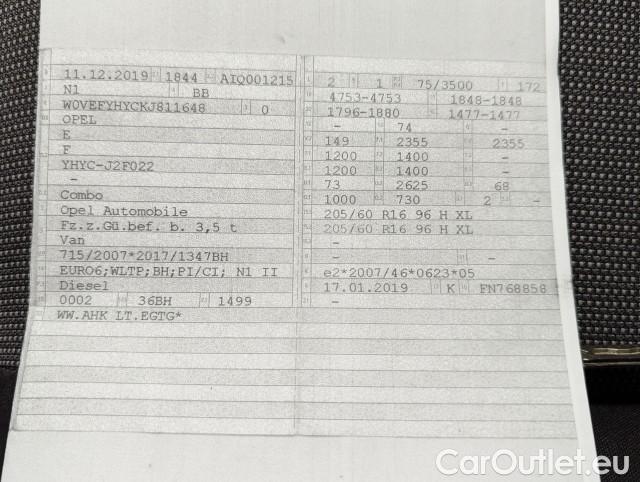 11.12.2019 1844 AIQ001215
N1 BB
W0VEFYHYCKJ811648 0
OPEL
E
F
YHYC-J2F022
-
Combo
Opel Automobile
Fz.z.Gü.bef. b. 3,5 t
Van
715/2007*2017/1347BH
EURO6;WLTP;BH;PI/CI; N1 II
Diesel
0002 36BH 1499
WW.AHK LT.EGTG*
2 1 75/3500 172
4753-4753 1848-1848
1796-1880 1477-1477
- 74 -
149 2355 2355
1200 1400 -
1200 1400 -
73 2625 68
1000 730 2 -
205/60 R16 96 H XL
205/60 R16 96 H XL
-
- -
e2*2007/46*0623*05
17.01.2019 K FN768858
-
CarOutlet.eu